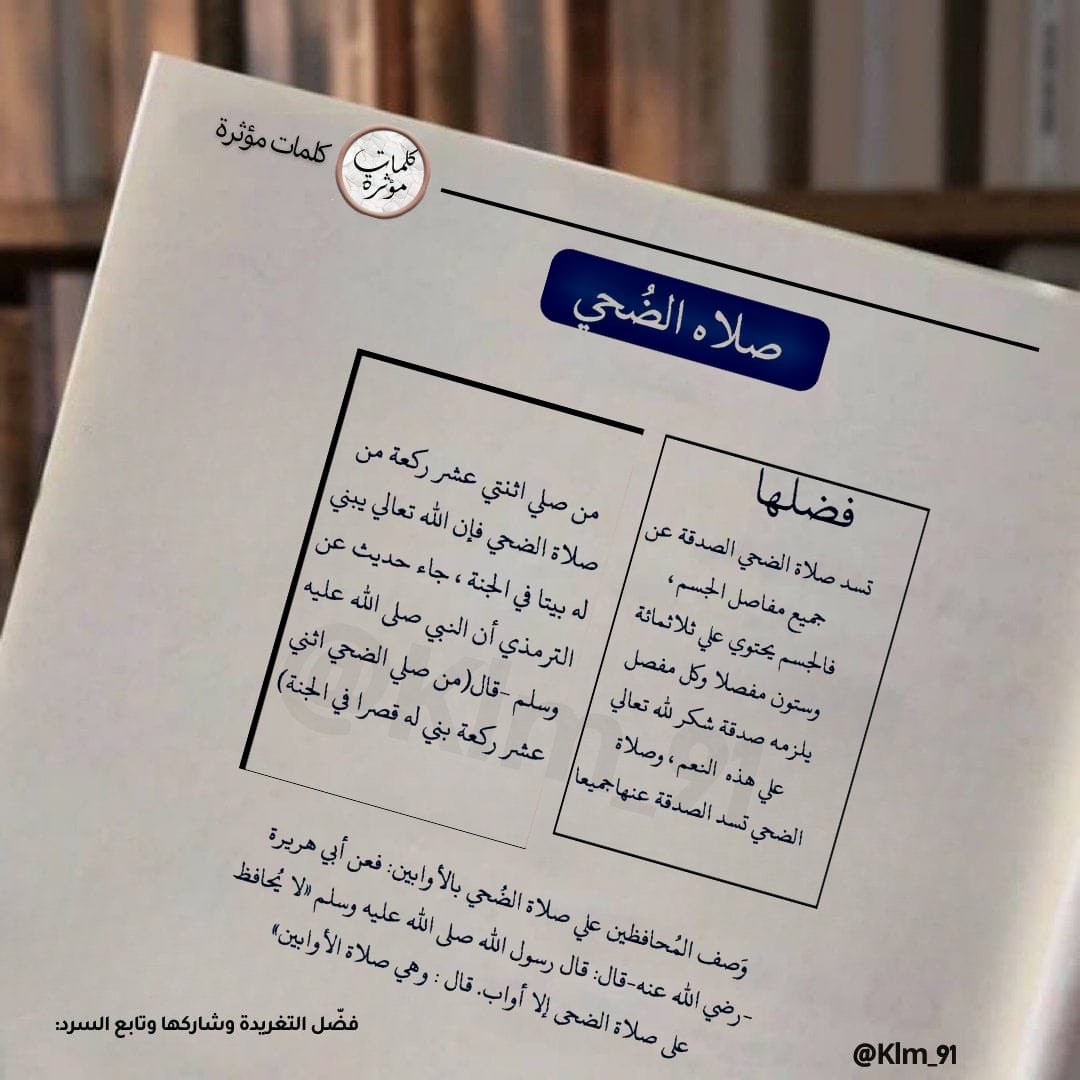 كلمات مؤثرة
كلمات
مؤثرة
صلاه الضُحي
فضلها
تسد صلاة الضحي الصدقة عن
جميع مفاصل الجسم،
فالجسم يحتوي علي ثلاثمائة
وستون مفصلا وكل مفصل
يلزمه صدقة شكر لله تعالي
علي هذه النعم، وصلاة
الضحي تسد الصدقة عنهاجميعا
من صلي اثنتي عشر ركعة من
صلاة الضحي فإن الله تعالي يبني
له بيتا في الجنة ، جاء حديث عن
الترمذي أن النبي صلى الله عليه
وسلم -قال(من صلي الضحي اثني
عشر ركعة بني له قصرا في الجنة)
@Klm_91
وَصف المُحافظين علي صلاة الضُحي بالأوابين: فعن أبي هريرة
-رضي الله عنه-قال: قال رسول الله صلى الله عليه وسلم «لا يُحافظ
على صلاة الضحى إلا أواب. قال : وهي صلاة الأوابين»
فضّل التغريدة وشاركها وتابع السرد:
@Klm_91